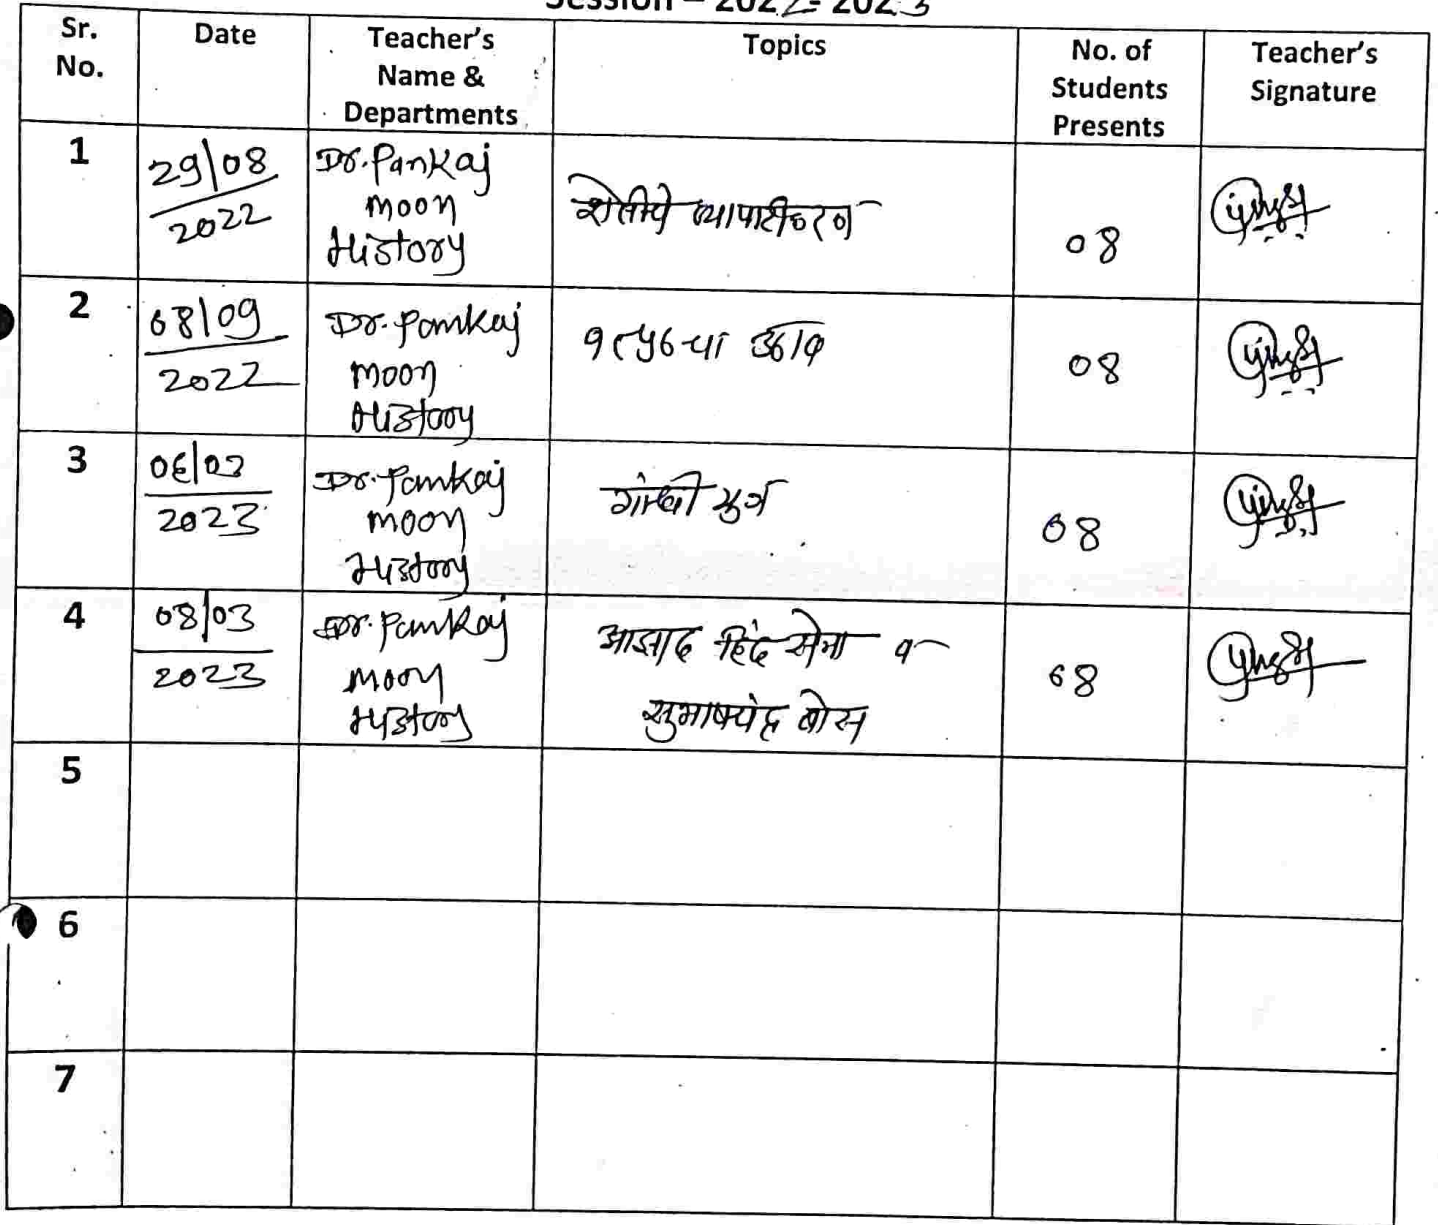 Session – 2022-2023
Sr. No.
Date
Teacher's Name & Departments
Topics
No. of Students Presents
Teacher's Signature
1
29/08/2022
Dr. Pankaj
moon
History
शेतीचे व्यापारीकरण
08
2
08/09/2022
Dr. Pankaj
moon
History
१८५७ चा उठाव
08
3
2023
Dr. Pankaj
moon
History
गांधी युग
08
4
08/03/2023
Dr. Pankaj
moon
History
आझाद हिंद सेना व
सुभाषचंद्र बोस
08
5
6
7